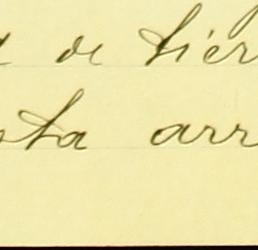 de tier
ota arr